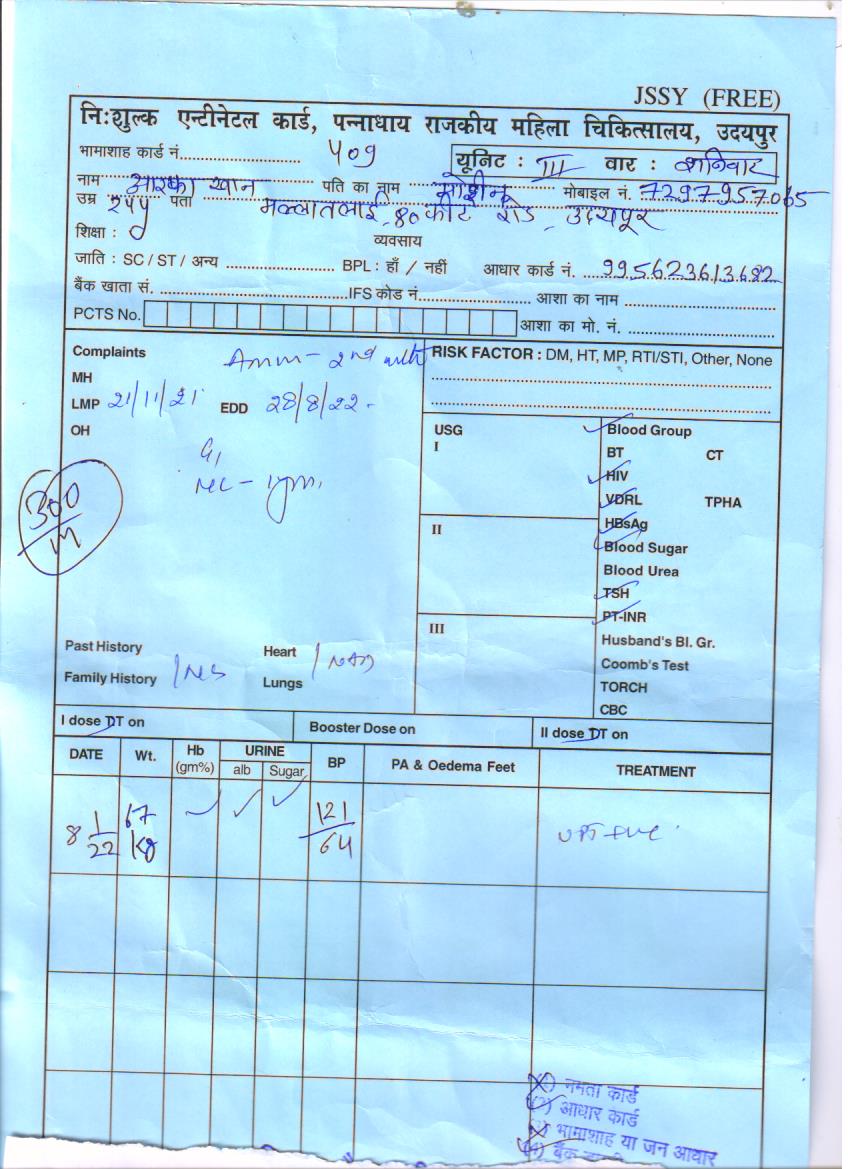 JSSY (FREE)
निःशुल्क एन्टीनेटल कार्ड, पन्नाधाय राजकीय महिला चिकित्सालय, उदयपुर
भामाशाह कार्ड नं. 409 यूनिट : III वार : शनिवार
नाम खान पति का नाम मोबाइल नं. 7297957065
उम्र 24y पता मल्लातलाई, 80 फीट रोड, उदयपुर
शिक्षा : व्यवसाय
जाति : SC / ST / अन्य BPL : हाँ / नहीं आधार कार्ड नं. 995623613682
बैंक खाता सं. IFS कोड नं. आशा का नाम
PCTS No. आशा का मो. नं.
Complaints Amm - 2nd mth RISK FACTOR : DM, HT, MP, RTI/STI, Other, None
MH
LMP 21/11/21 EDD 28/8/22
OH
G1
ML - 1yr
300
USG
I
II
III
Blood Group
BT CT
HIV
VDRL TPHA
HBsAg
Blood Sugar
Blood Urea
TSH
PT-INR
Husband's Bl. Gr.
Coomb's Test
TORCH
CBC
Past History Heart NAD
Family History NS Lungs
I dose DT on Booster Dose on II dose DT on
DATE Wt. Hb (gm%) URINE alb Sugar BP PA & Oedema Feet TREATMENT
8/1/22 67 kg 121/64 UPT +ve
(1) ममता कार्ड
(2) आधार कार्ड
(3) भामाशाह या जन आधार
(4) बैंक